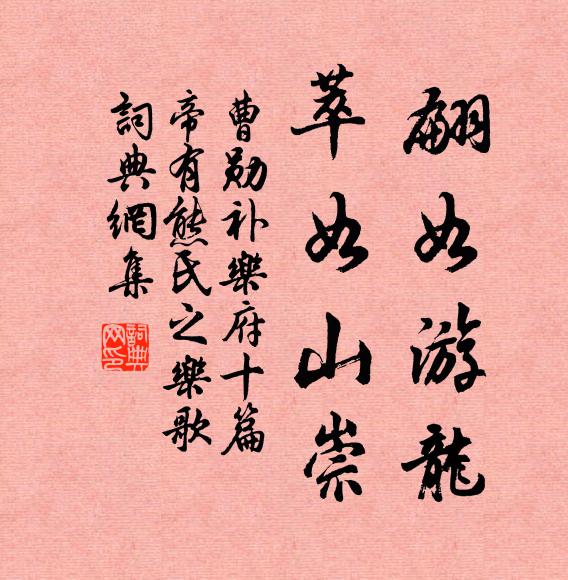 翩如游龍
萃如山崇
曹勛补樂府十篇
帝有熊氏之樂歌
詞典網集
詞典网印